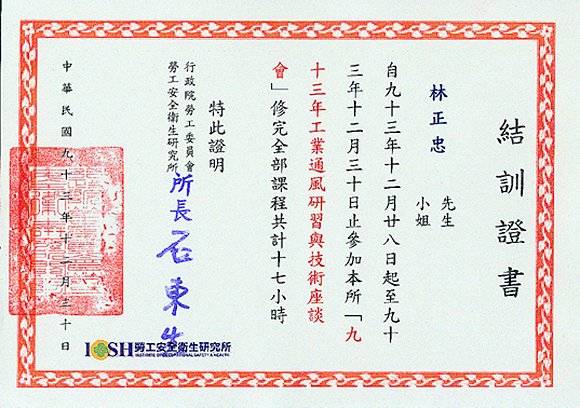 結訓證書
林正忠
先生
小姐
自九十三年十二月廿八日起至九十
三年十二月三十日止參加本所「九
十三年工業通風研習與技術座談
會」修完全部課程共計十七小時
特此證明
行政院勞工委員會
勞工安全衛生研究所
所長 石東生
中華民國九十三年十二月三十日
IOSH 勞工安全衛生研究所
INSTITUTE OF OCCUPATIONAL SAFETY & HEALTH